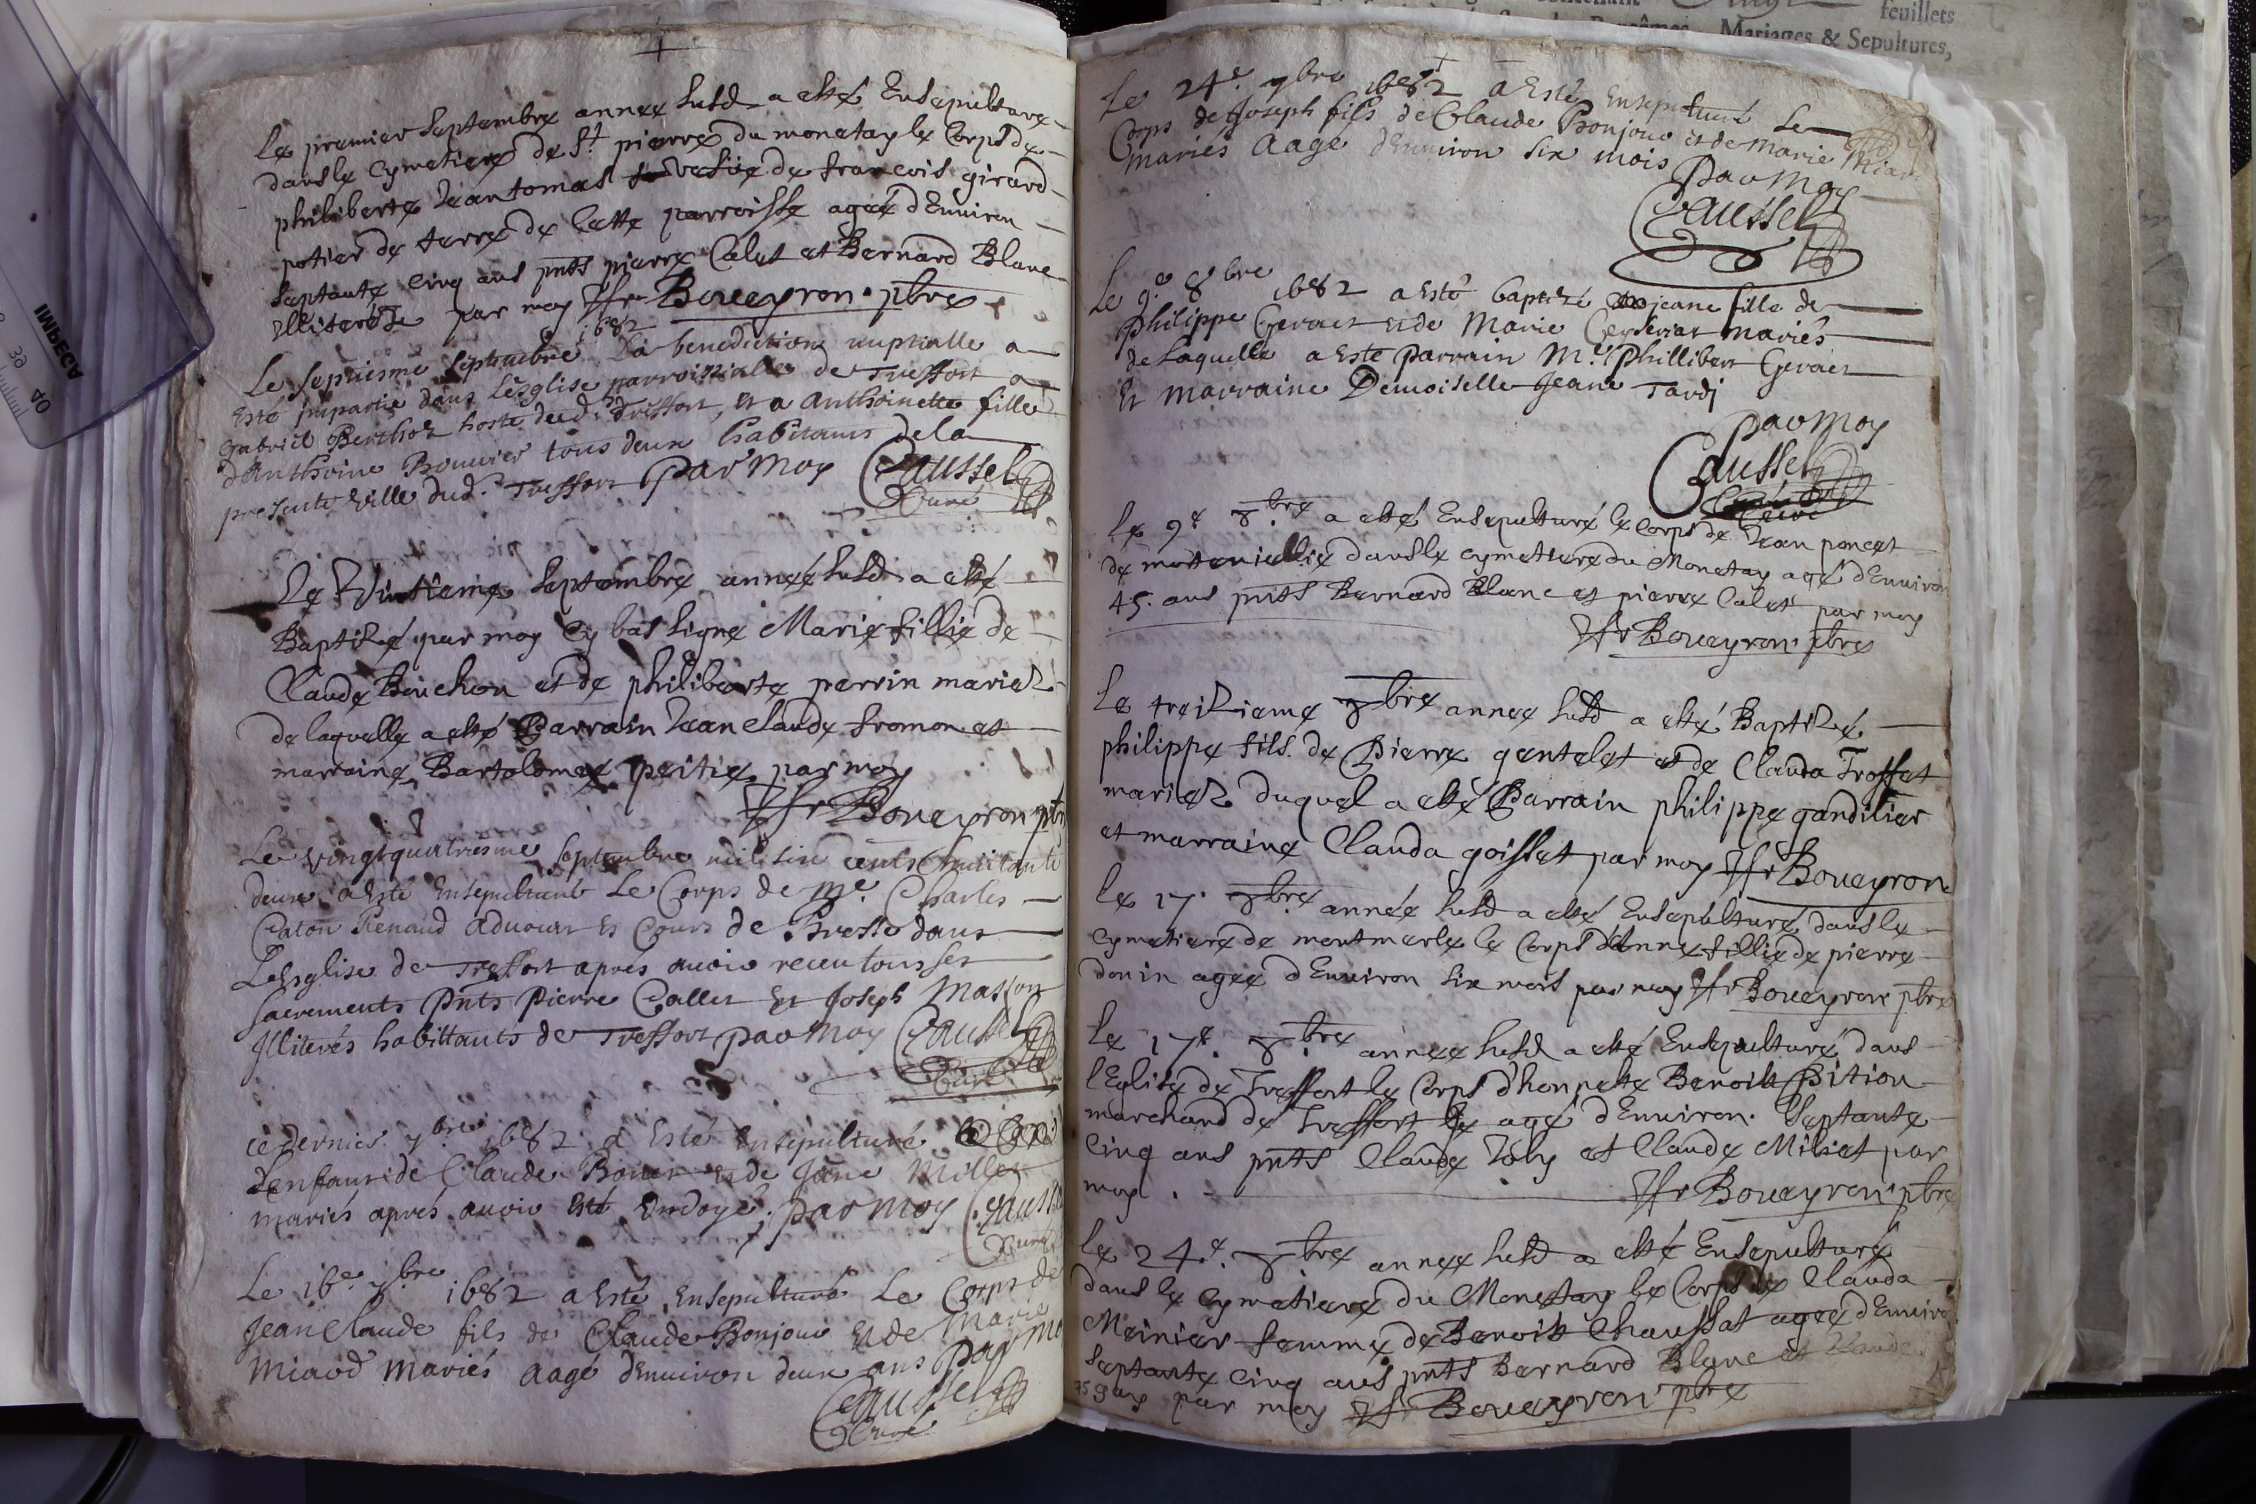 feuillets
Mariages & Sepultures,
Le premier septembre année susd a esté Ensepulturé
dans le cymetiere de St pierre du monetay le Corps de
philiberte Jeantomas vefve de francois girard
potier de terre de cette parroisse agée d'Environ
septante cinq ans pnts pierre Calet et Bernard Blanc
illiterés par moy Boueyron pbre
Le septiesme septembre 1682 La benediction nuptialle a
Esté impartie dans L'esglise parroissialle de Treffort a
gabriel Berthot hoste dud. Treffort, Et a Anthoinette fille
d'Anthoine Bouvier tous deux habitants de la
presente ville dud. Treffort par moy Caussel
Curé
Le Vintieme septembre année susd a esté
Baptizé par moy Cy bas signe Marie fillie de
Claude Bouchon et de philiberte perrin mariez
de laquelle a esté Parrain Jean Claude fromon et
marraine Bartolomee peitie par moy
Boueyron pbre
Le vingtquatriesme septembre mil six cents huittante
deux a Esté Ensepulturé Le Corps de Me. Charles
Caton Renaud Advocat Es Cours de Bresse dans
L'Esglise de Treffort aprés avoir receu tous ses
sacrements Pnts Pierre Callet Et Joseph Masson
Illiterés habittants de Treffort par moy Caussel
Curé
ce dernier 7bre 1682 a Esté Ensepulturé le Corps
d'enfant de Claude Bouer et de Jane Millet
mariés aprés avoir Esté Endoyé; par moy Caussel
Curé
Le 16e 7bre 1682 a Esté Ensepulturé Le Corps de
Jean Claude fils de Claude Bonjour Et de Marie
Miaod Mariés Aagé d'Environ deux ans par moy
Caussel
Curé
Le 24e 7bre 1682 a Esté Ensepulturé Le
Corps de Joseph fils de Claude Bonjour et de Marie
Mariés Aagé d'Environ six mois
par moy
Caussel
Le 9e 8bre 1682 a Esté baptizé jeane fille de
Philippe Gervais et de Marie mariés
de Laquelle a Esté parrain Mr Phillibert Gervais
Et Marraine Demoiselle Jeane Tardj
par moy
Caussel
Curé
Le 9e 8bre a esté Ensepulturé le Corps de Jean poncet
de dans le cymetiere du Monetay agé d'Environ
45. ans pnts Bernard Blanc et pierre Calet par moy
Boueyron pbre
Le treizieme 8bre année susd a esté Baptizé
philippe fils de Pierre gentelet et de Clauda Troffet
mariez duquel a esté Parrain philippe gandilier
et marraine Clauda goisset par moy Boueyron
Le 17. 8bre année susd a esté Ensepulturé dans le
cymetiere de montmerle le Corps d'Anne fillie de pierre
donin agee d'Environ six mois par moy Boueyron pbre
Le 17e. 8bre année susd a esté Ensepulturé dans
l'Eglise de Treffort le Corps d'honneste Benoist Pition
marchand de Treffort agé d'Environ. Septante
Cinq ans pnts Claude Joly et Claude Miliet par
moy. Boueyron pbre
Le 24e. 8bre année susd a esté Ensepulturé
dans le Cymetiere du Monestay le Corps de Clauda
Meinier femme de Benoist Chaussat agee d'Environ
septante cinq ans pnts Bernard Blanc et Claude
par moy Boueyron pbre